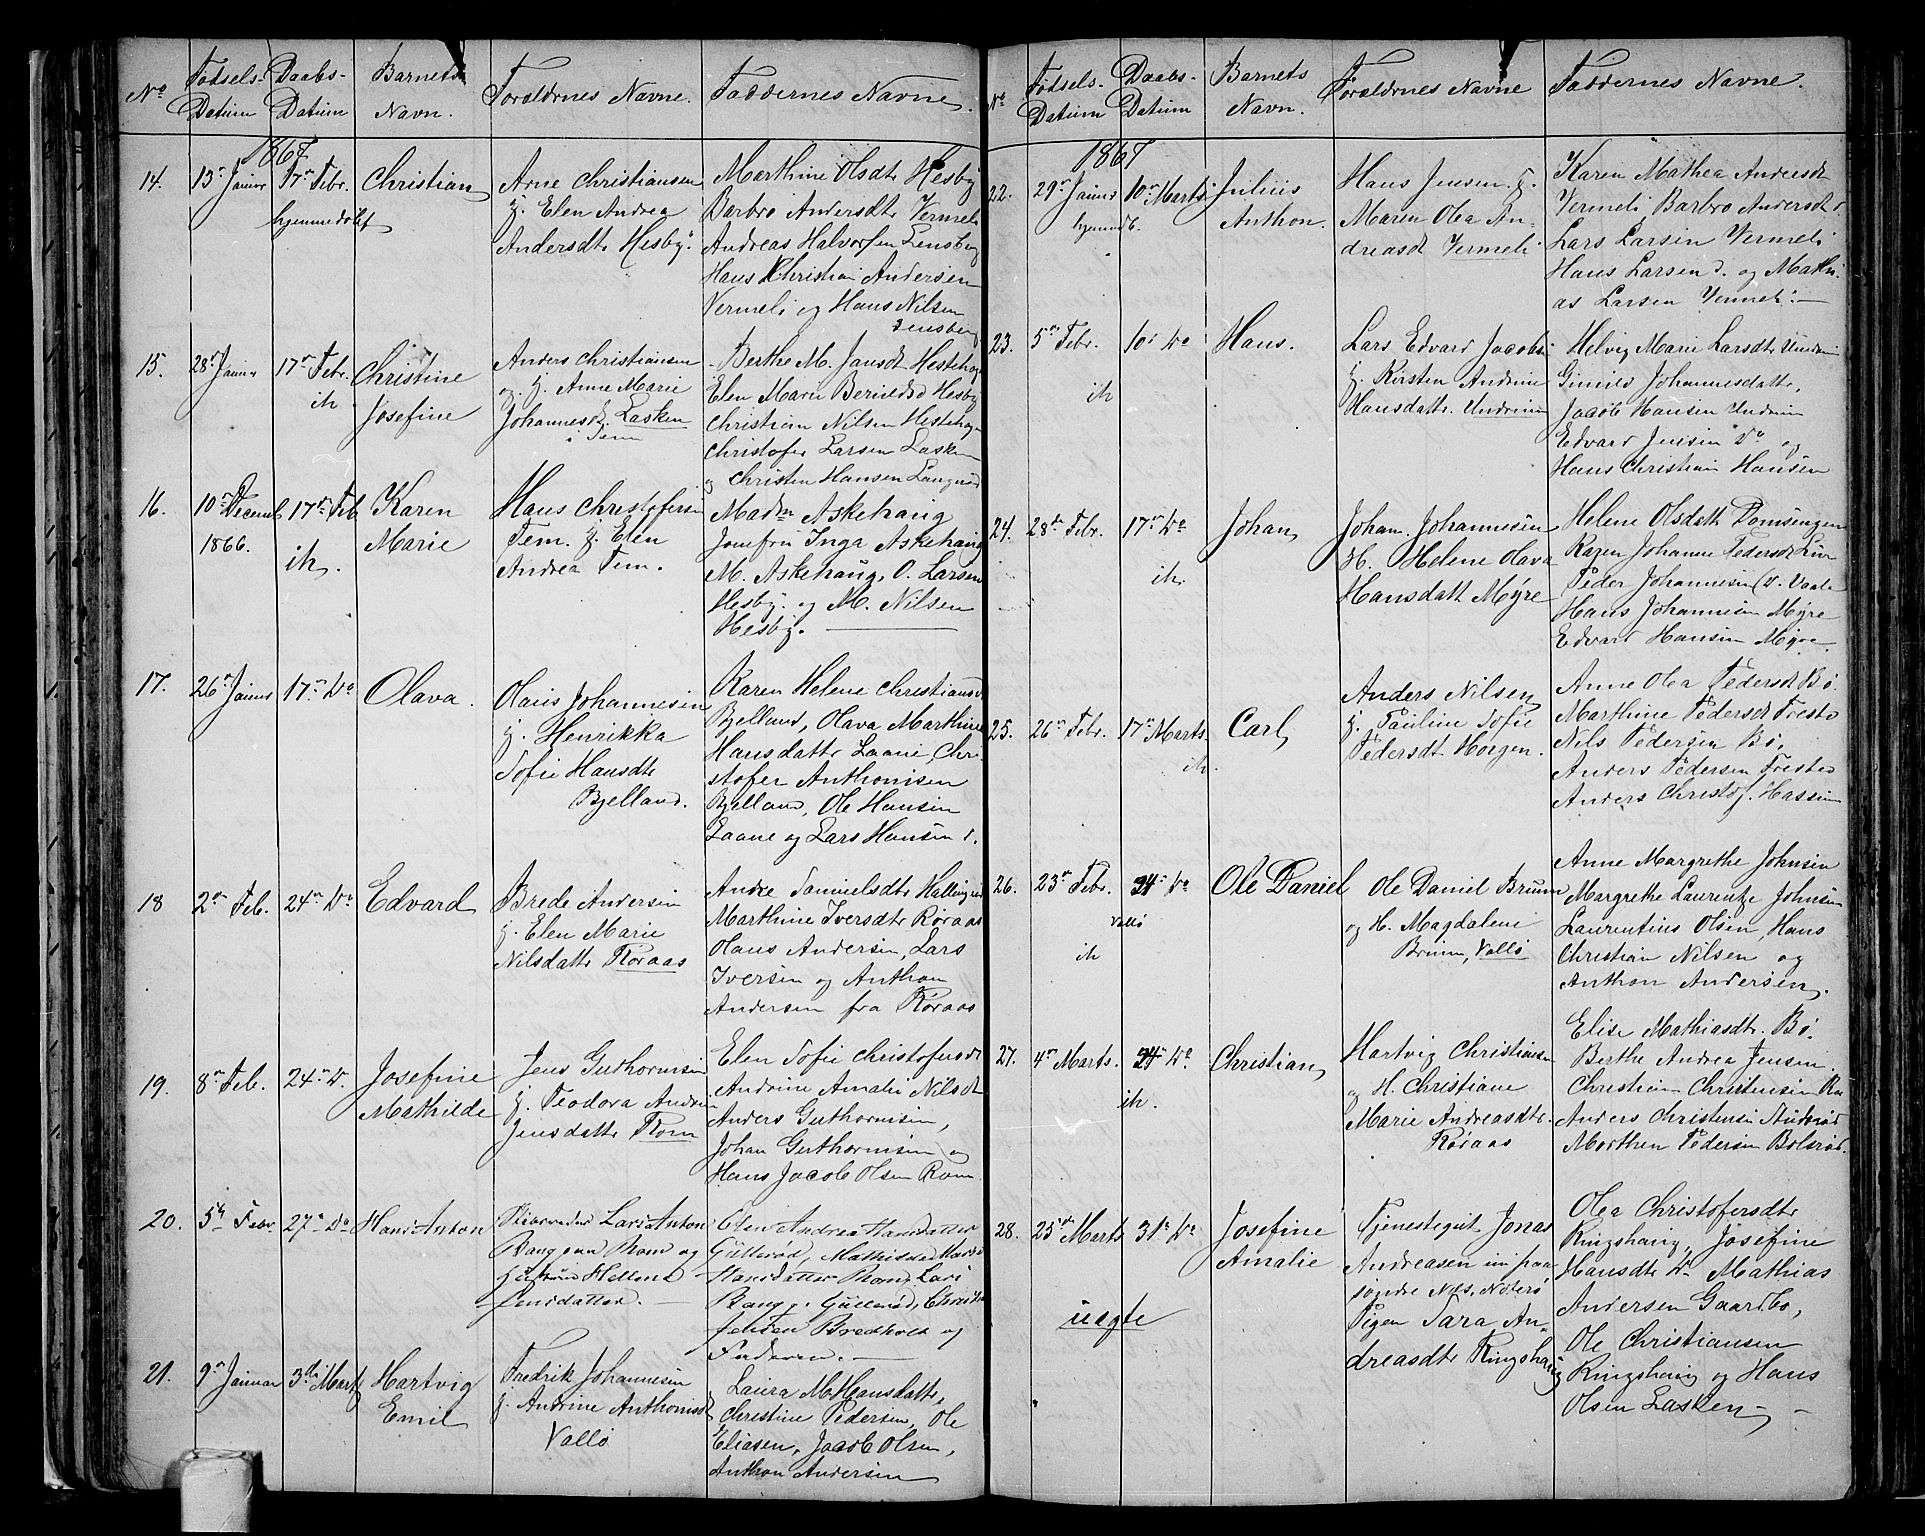 No
Fødsels-
Datum
Daabs-
Datum
Barnets
Navn.
Forældrnes Navne.
Faddernes Navne.
1867
14.
13de Januar
17de Febr.
hjemmedøbt
Christian
Arne Christiansen
g. Elen Andrea
Andersdtr Hesby.
Marthine Olsdtr Hesby
Barbro Andersdtr Vermeli
Andreas Halvorsen Lensberg
Hans Christian Andersen
Vermeli og Hans Nilsen
Lensberg
15.
28de Januar
17de Febr.
ik
Christine
Josefine
Anders Christiansen
og g. Anne Marie
Johannesd. Lasken
i Tem
Berthe M. Jansdt Hestehag
Elen Marie Berntsd Hesby
Christian Nilsen Hestehag
Christofer Larsen Lasken
og Christen Hansen
16.
10de Decemb
1866.
17de Feb
ik.
Karen
Marie
Hans Christofersen
Tem. g. Elen
Andrea Tem.
Madm Askehaug
Jomfru Inga Askehaug
M. Askehaug, O. Larsen
Hesby. og M. Nilsen
Hesby.
17.
26de Januar
17de Do
Olava.
Olaus Johannesen
g. Henrikka
Sofie Hansdtr
Bjelland.
Karen Helene Christiansd
Bjelland, Olava Marthine
Hansdatter Laane, Chri
stofer Anthonisen
Bjelland, Ole Hansen
Laane og Lars Hansen d.
18
2den Feb.
24de Do
Edvard
Brede Andersen
g. Elen Marie
Nilsdatter Roraas
Andre Samuelsdtr
Marthine Iversdtr Roraas
Olaus Andersen, Lars
Iversen og Anthon
Andersen fra Roraas
19.
8de Feb.
24de D.
Josefine
Mathilde
Jens Guthormsen
g. Teodora Andrea
Jensdatter Rom
Elen Sofie Christofersdt
Andrine Amalie Nilsdt
Anders Guthormsen,
Johan Guthormsen og
Hans Jacob Olsen Rom
20.
5te Febr
27de Do
Hans Anton
Lars Anton
Bang paa Rom og
Hellene
Jensdatter.
Elen Andrea Hansdatter
Gullerød, Mathilde
Hansdatter Rom, Lars
Bang, Gullerød,
Jensen Bredholt og
Faderen.
21.
9de Januar
3die Mart
Hartvig
Emil
Fredrik Johannesen
g. Andrine Anthonisdt
Vallø
Laura M. Hansdatter,
Christine Pedersen, Ole
Eliasen, Jacob Olsen,
Anthon Andersen
No
Fødsels-
Datum
Daabs-
Datum
Barnets
Navn.
Forældrnes Navne
Faddernes Navne.
1867
22.
29de Januar
hjemmd.
10de Marts
Julius
Anthon.
Hans Jensen. g.
Maren Olea An-
dreasdt Vermeli
Karen Mathea Andersdt
Vermeli, Barbro Andersdt d.
Lars Larsen Vermeli
Hans Larsen d. og Mathi
as Larsen Vermeli.
23.
5te Febr.
ik
10de Do
Hans.
Lars Edvard Jacobs
g. Kirsten Andrine
Hansdattr. Undrum
Helvig Marie Larsdtr Undrum
Johannesdatter,
Jacob Hansen Undrum
Edvard Jensen Do og
Hans Christian Hansen
24.
28de Febr.
17de Do
ik.
Johan
Joham. Johannesen
H. Helene Olava
Hansdatt Myre
Helene Olsdatt
Karen Johanne Pedersdt
Peder Johannesen
Hans Johannesen Myre
Edvard Hansen Myre.
25.
26de Febr.
17de Marts
ik.
Carl
Anders Nilsen
g. Pauline Sofie
Pedersdt. Horgen.
Anne Olea Pedersdt Bø.
Marthine Pedersdt Fresti
Nils Pedersen Bø,
Anders Pedersen
Anders Christof.
26.
23de Febr.
ik
24de Do
Vallø
Ole Daniel
Ole Daniel Bruun
og H. Magdalene
Bruun, Vallø
Anne Margrethe Johnsen
Margrethe Laurentze Johnsen
Laurentius Olsen, Hans
Christian Nilsen og
Anthon Andersen.
27.
4de Marts.
24de Do.
ik.
Christian
Hartvig Christiansen
og H. Christiane
Marie Andreasdtr.
Roraas
Elise Mathiasdtr. Bø.
Berthe Andrea Jensen.
Christian Christensen
Anders Christensen
Morthen Pedersen Bolsrød.
28.
25de Marts
31te Do
uægte
Josefine
Amalie
Tjenestegut Jonas
Andreasen nu paa
søndre Nøterø
Pigen Sara An-
dreasdtr Ringshaug
Olea Christofersdtr
Ringshaug, Josefine
Hansdtr Do Mathias
Andersen Gaardbo,
Ole Christiansen
Ringshaug og Hans
Olsen Lasken